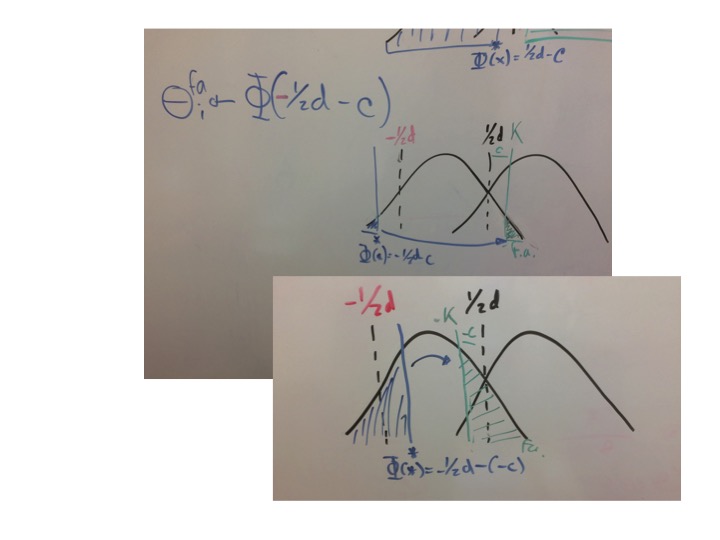 Φ(x)=½d-C
θᵢ^fa ← Φ(-½d - c)
-½d ½d K
c
Φ(*)=-½d c
f.a.
-½d -K ½d
-c
Fa.
Φ(*)=-½d-(-c)